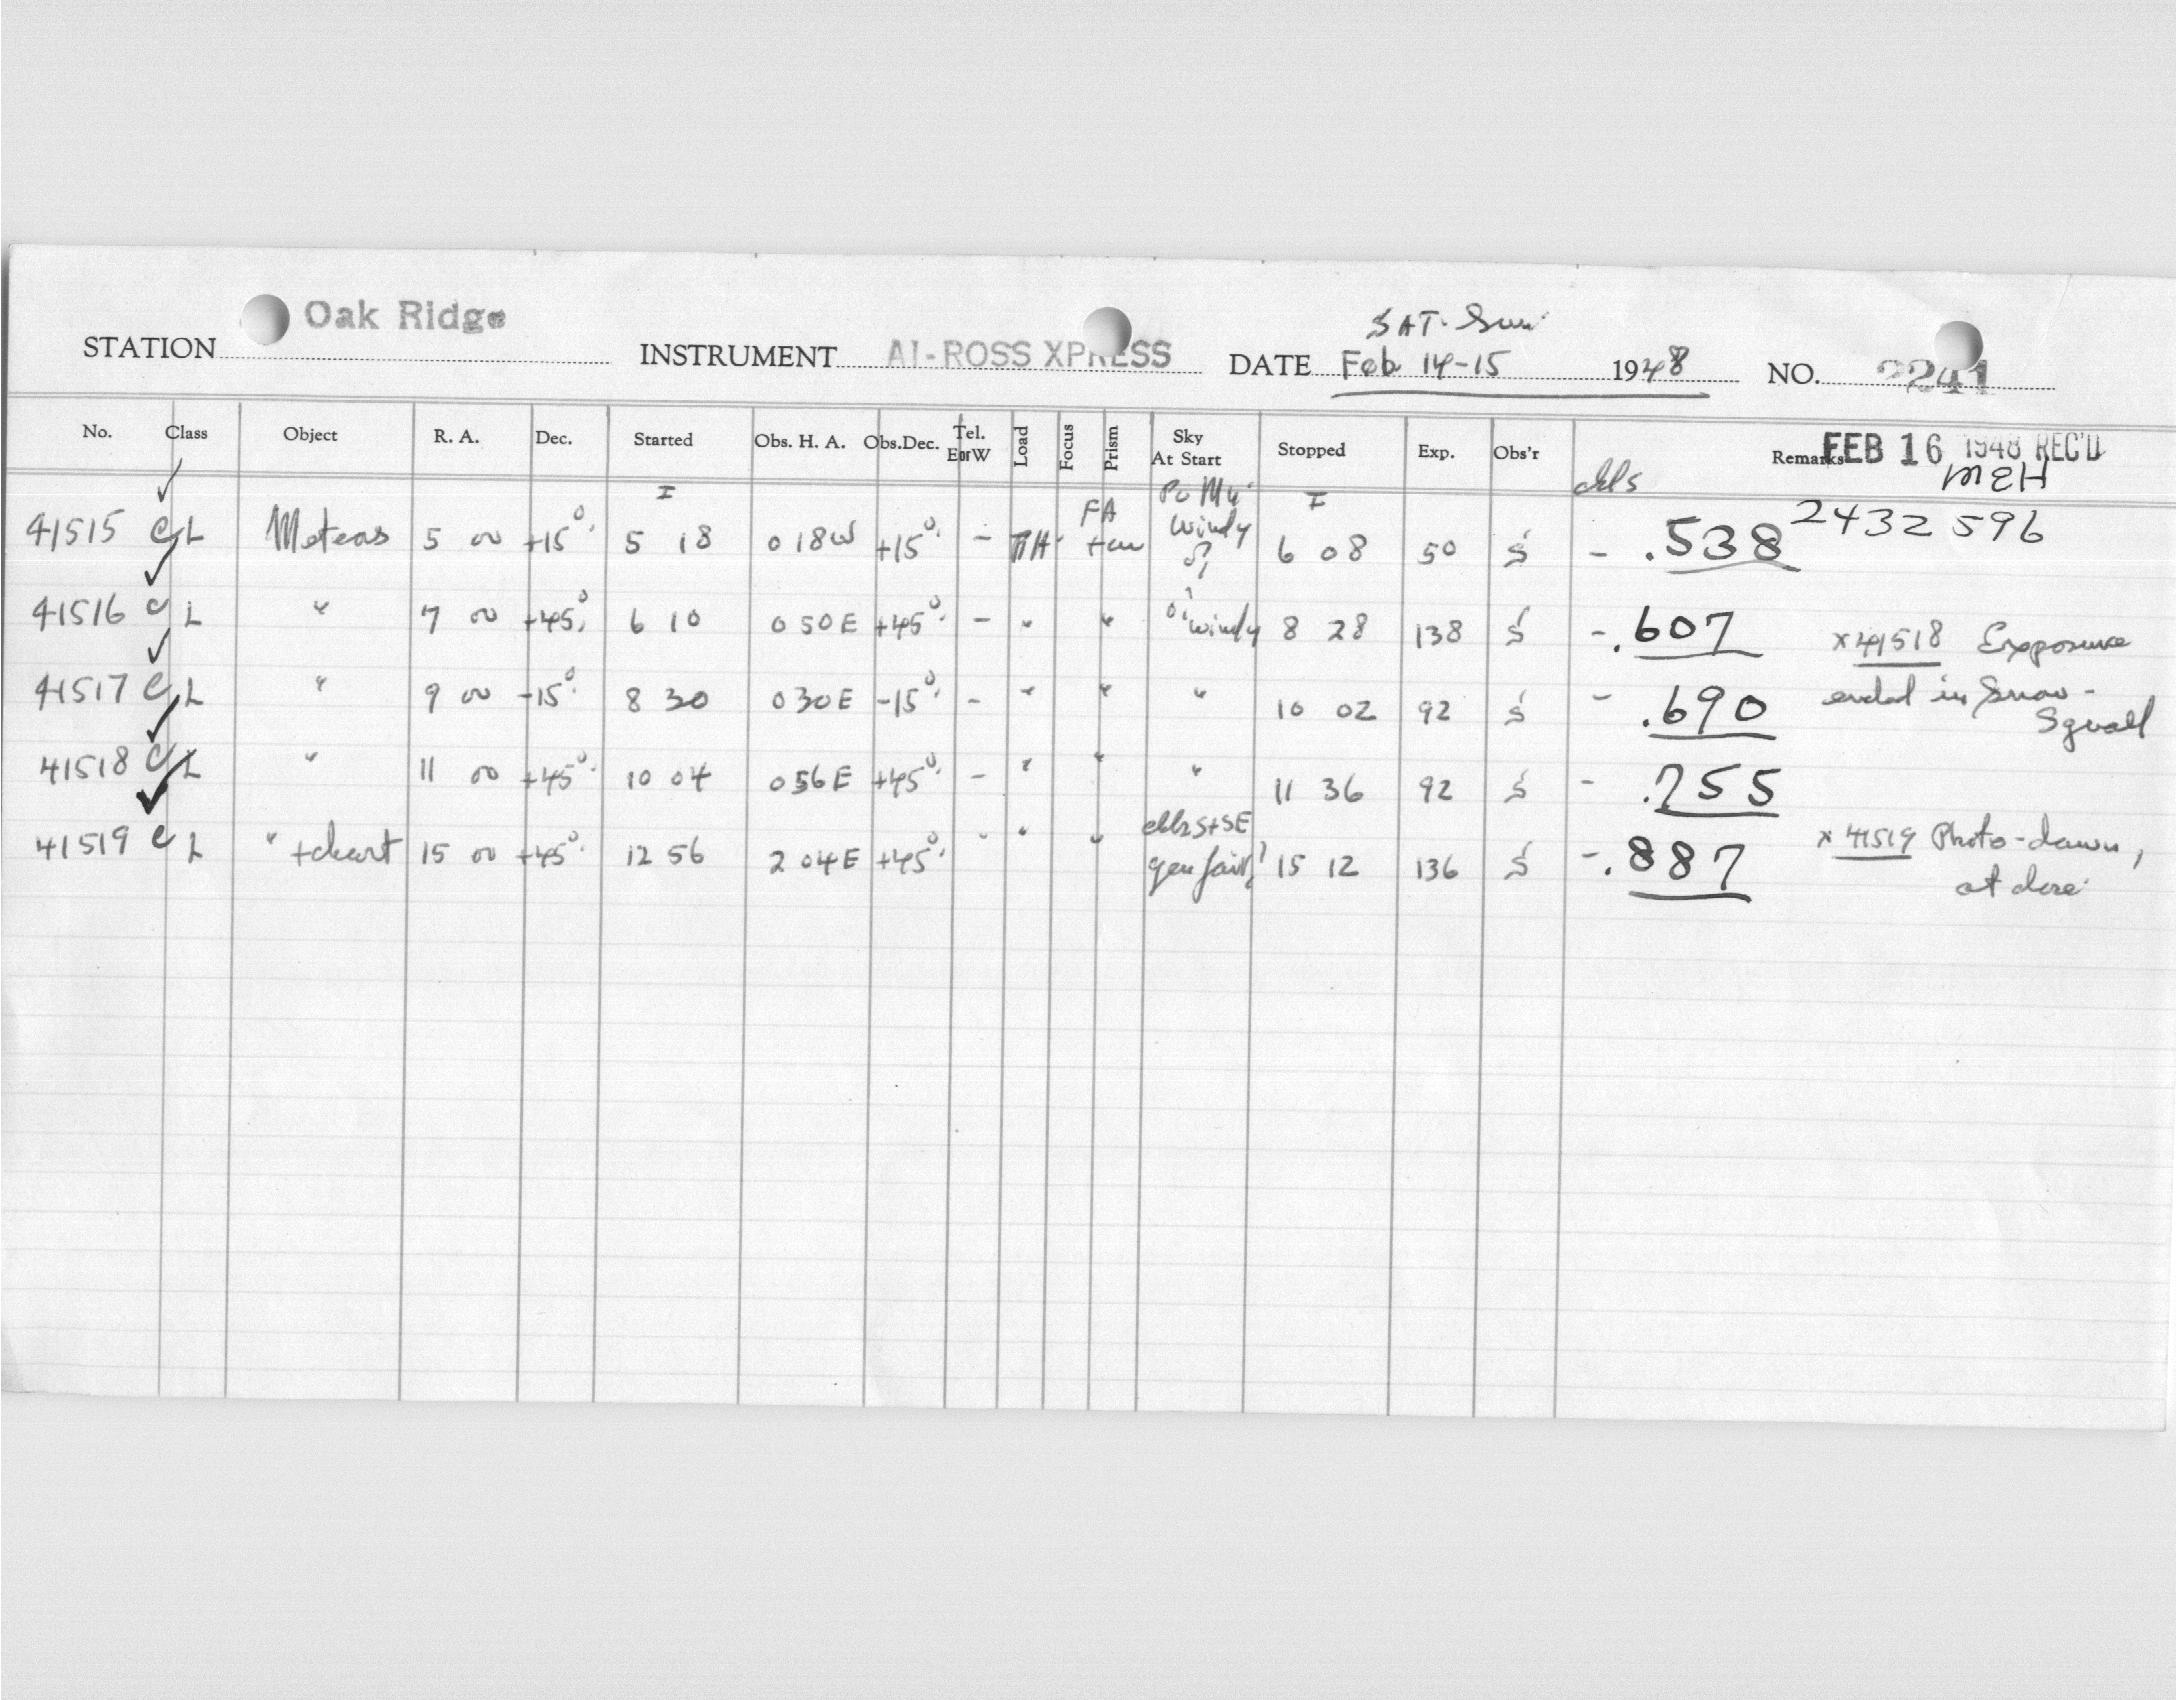 Oak Ridge SAT-Sun
STATION INSTRUMENT AI-ROSS XPRESS DATE Feb 14-15 1948 NO. 2241
No. Class Object R. A. Dec. Started Obs. H. A. Obs.Dec. Tel. E or W Load Focus Prism Sky At Start Stopped Exp. Obs'r Remarks FEB 16 1948 REC'D
MEH
41515 C L Meteors 5 00 +15° 5 18 0 18W +15° - FA windy 6 08 50 S - .538 2432 596
41516 C L " 7 00 +45° 6 10 0 50E +45° - " " windy 8 28 138 S - .607 x 41518 Exposure
41517 C L " 9 00 -15° 8 30 0 30E -15° - " " " 10 02 92 S - .690 ended in Snow-
Squall
41518 C L " 11 00 +45° 10 04 0 56E +45° - " " " 11 36 92 S - .755
41519 C L " + chart 15 00 +45° 12 56 2 04E +45° " " " gen fair 15 12 136 S - .887 x 41519 Photo-dawn,
at close